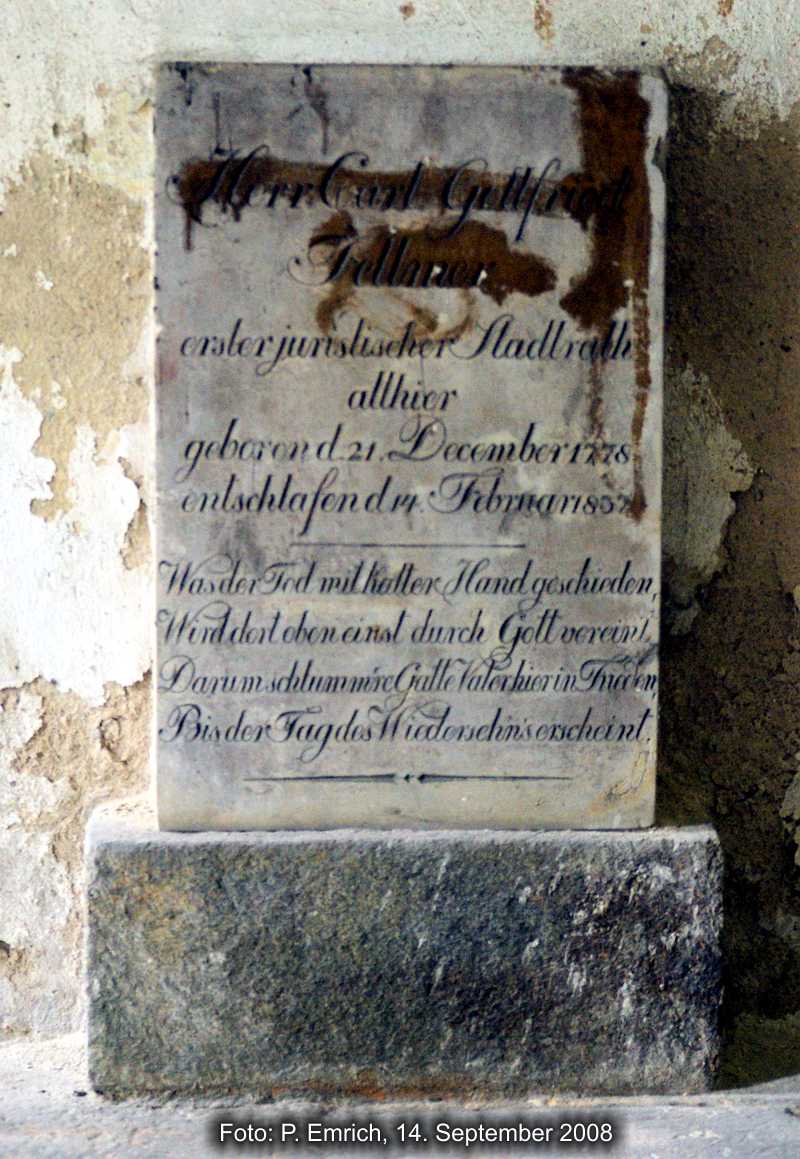 Herr Carl Gottfried
Fellmer
erster juristischer Stadtrath
allhier
geboren d. 21. December 1778
entschlafen d 14. Februar
Was der Tod mit kalter Hand geschieden,
Wird dort oben einst durch Gott vereint.
Darum schlumm're Gatte Vater hier in Frieden,
Bis der Tag des Wiedersehn's erscheint.
Foto: P. Emrich, 14. September 2008